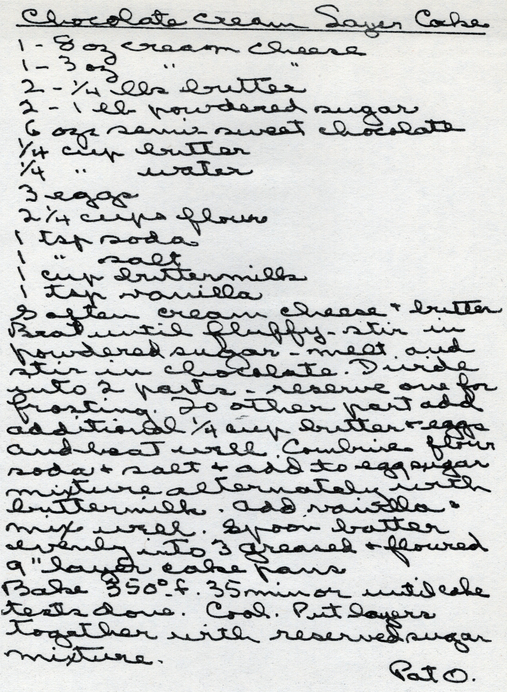 Chocolate Cream Layer Cake
1 - 8 oz cream cheese
1 - 3 oz " "
2 - 1/4 lbs butter
2 - 1 lb powdered sugar
6 ozs semi-sweet chocolate
1/4 cup butter
1/4 " water
3 eggs
2 1/4 cups flour
1 tsp soda
1 " salt
1 cup buttermilk
1 tsp vanilla
Soften cream cheese + butter
Beat until fluffy - stir in
powdered sugar - melt and
stir in chocolate. Divide
into 2 parts - reserve one for
frosting. To other part add
additional 1/4 cup butter + eggs
and beat well. Combine flour
soda + salt + add to egg sugar
mixture alternately with
buttermilk. add vanilla +
mix well. Spoon batter
evenly into 3 greased + floured
9" layer cake pans
Bake 350° f. 35 min or until cake
tests done. Cool. Put layers
together with reserved sugar
mixture.
Pat O.